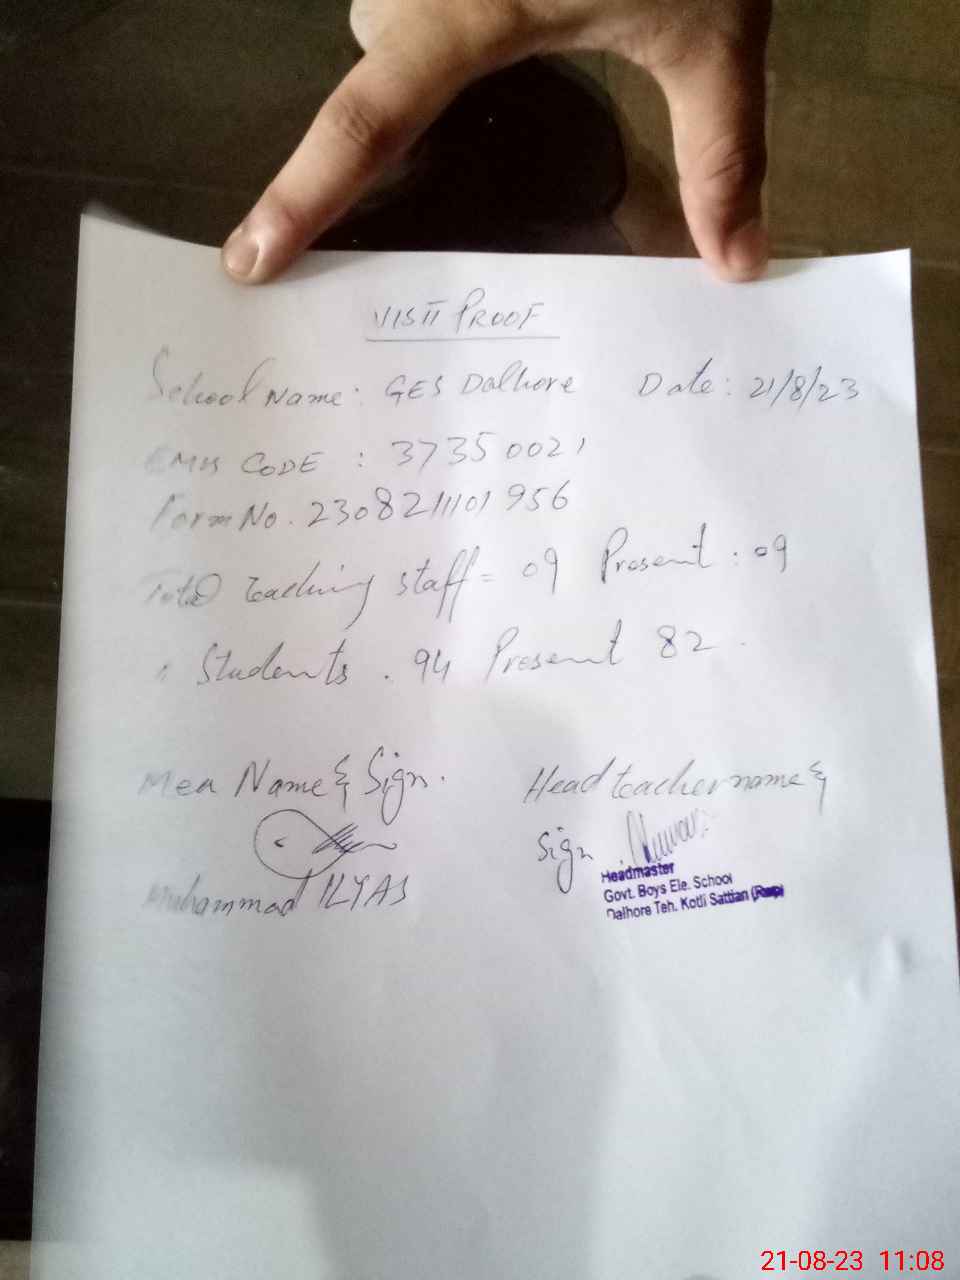 VISIT PROOF
School Name: GES Dalhore Date: 21/8/23
EMIS CODE : 37350021
Form No. 2308211101956
Total teaching staff = 09 Present : 09
" Students . 94 Present 82 .
Mea Name & Sign.
Head teacher name &
Sign .
Muhammad ILYAS
Headmaster
Govt. Boys Ele. School
Dalhore Teh. Kotli Sattian (Rwp)
21-08-23 11:08